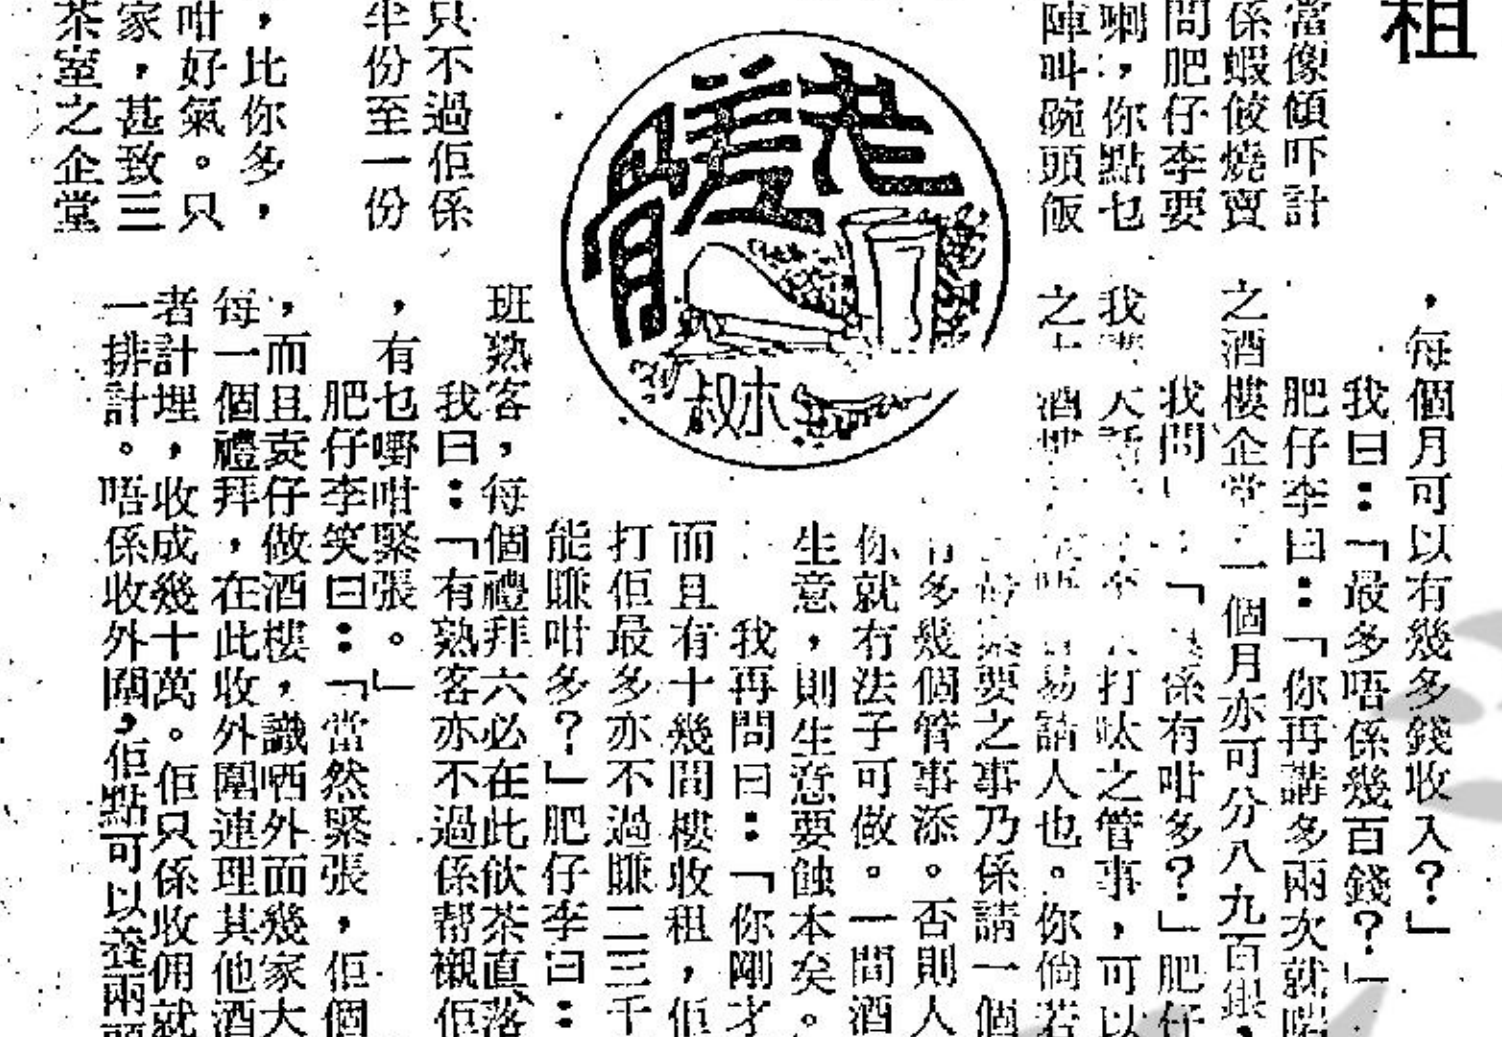 租
當像傾吓計
係蝦餃燒賣
問肥仔李要
喇，你點乜
陣叫碗頭飯
老差骨
叔木
只不過佢係
半份至一份
，比你多，
咁好氣。只
家，甚致三
茶室之企堂
，每個月可以有幾多錢收入？」
我曰：「最多唔係幾百錢？」
肥仔李曰：「你再講多兩次就啱
之酒樓企堂 一個月亦可分八九百銀，
我問 ：「 係有咁多？」肥仔
我 大話 打躉之管事，可以
之 酒樓 易請人也。你倘若
要之事乃係請一個
多幾個管事添。否則人
你就冇法子可做。一間酒
生意，則生意要蝕本矣。
我再問曰：「你剛才
而且有十幾間樓收租，佢
打佢最多亦不過賺二三千
能賺咁多？」肥仔李曰：
班熟客，每個禮拜六必在此飲茶直落
我曰：「有熟客亦不過係帮襯佢
，有乜嘢咁緊張。」
肥仔李笑曰：「當然緊張，佢個
，而且袁仔做酒樓，識哂外面幾家大
每一個禮拜，在此收外圍連理其他酒
者計埋，收成幾十萬。佢只係收佣就
一排計。唔係收外圍，佢點可以養兩頭